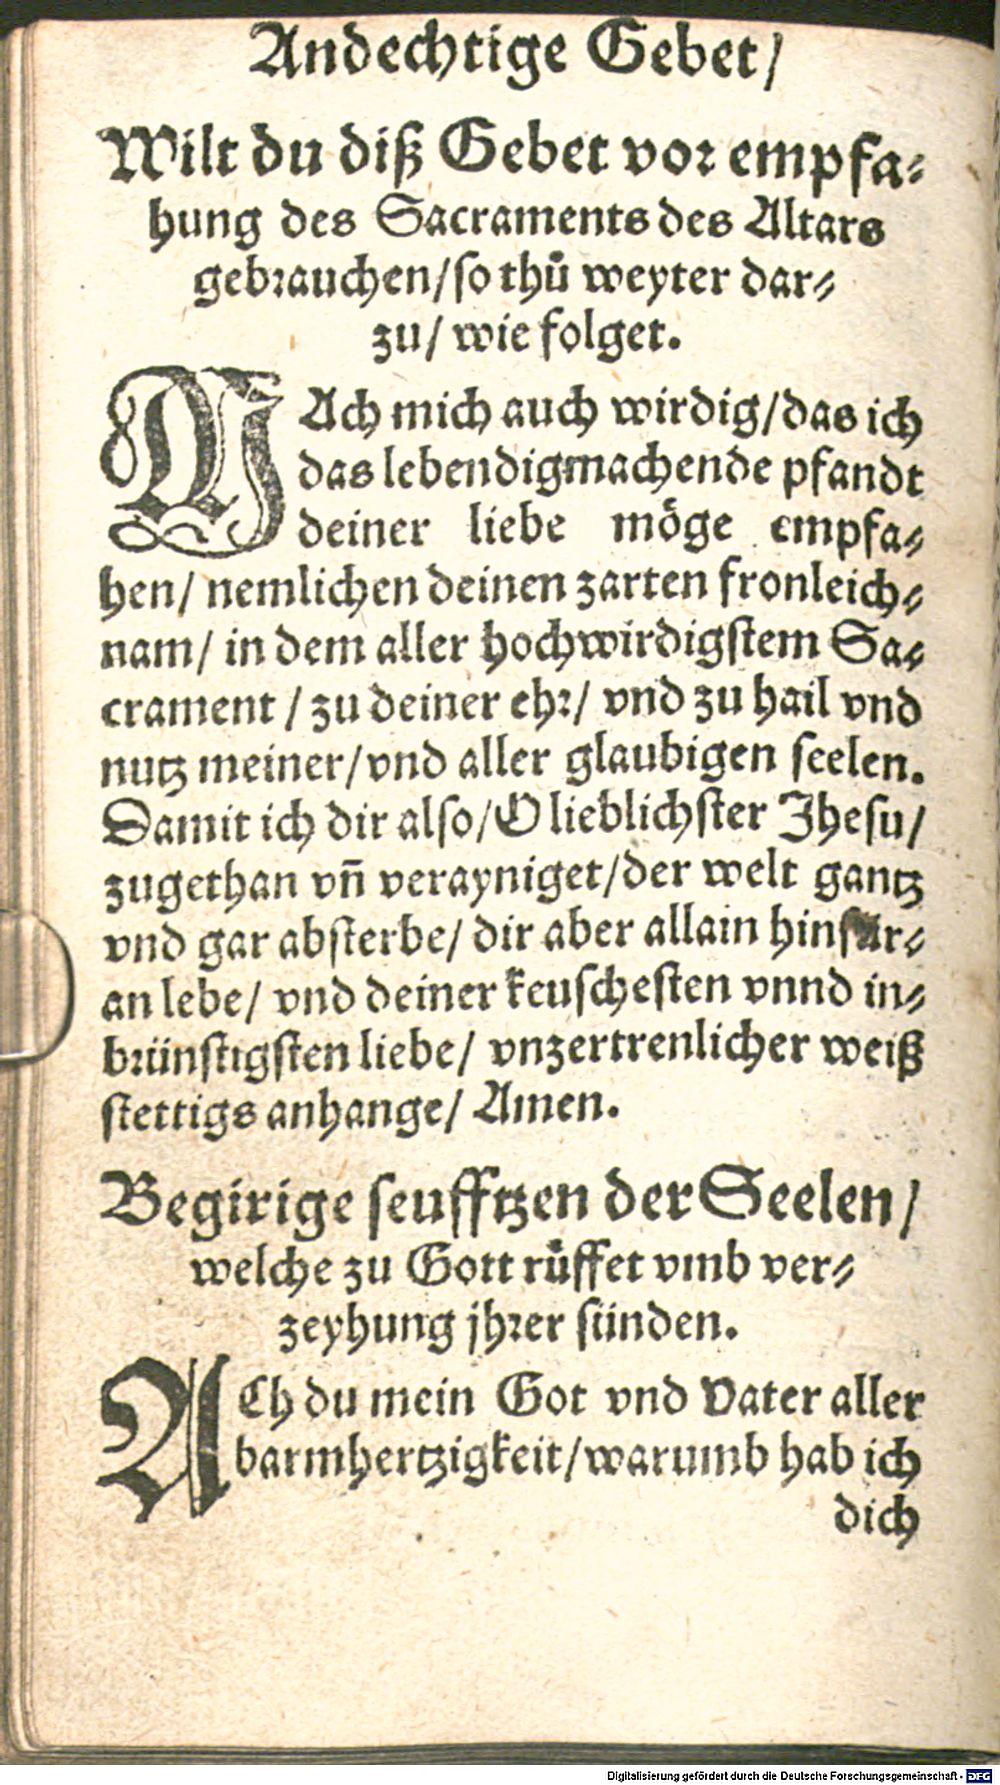 Andechtige Gebet/
Wilt du diß Gebet vor empfa⸗
hung des Sacraments des Altars
gebrauchen/so thů weyter dar⸗
zu/ wie folget.
MAch mich auch wirdig/das ich
das lebendigmachende pfandt
deiner liebe möge empfa⸗
hen/ nemlichen deinen zarten fronleich⸗
nam/ in dem aller hochwirdigstem Sa⸗
crament / zu deiner ehr/ vnd zu hail vnd
nutz meiner/vnd aller glaubigen seelen.
Damit ich dir also/O lieblichster Jhesu/
zugethan vñ verayniget/der welt gantz
vnd gar absterbe/ dir aber allain hinfür⸗
an lebe/ vnd deiner keuschesten vnnd in⸗
brünstigsten liebe/ vnzertrenlicher weiß
stettigs anhange/ Amen.
Begirige seufftzen der Seelen/
welche zu Gott růffet vmb ver⸗
zeyhung jhrer sünden.
ACh du mein Got vnd Vater aller
barmhertzigkeit/warumb hab ich
dich
Digitalisierung gefördert durch die Deutsche Forschungsgemeinschaft - DFG